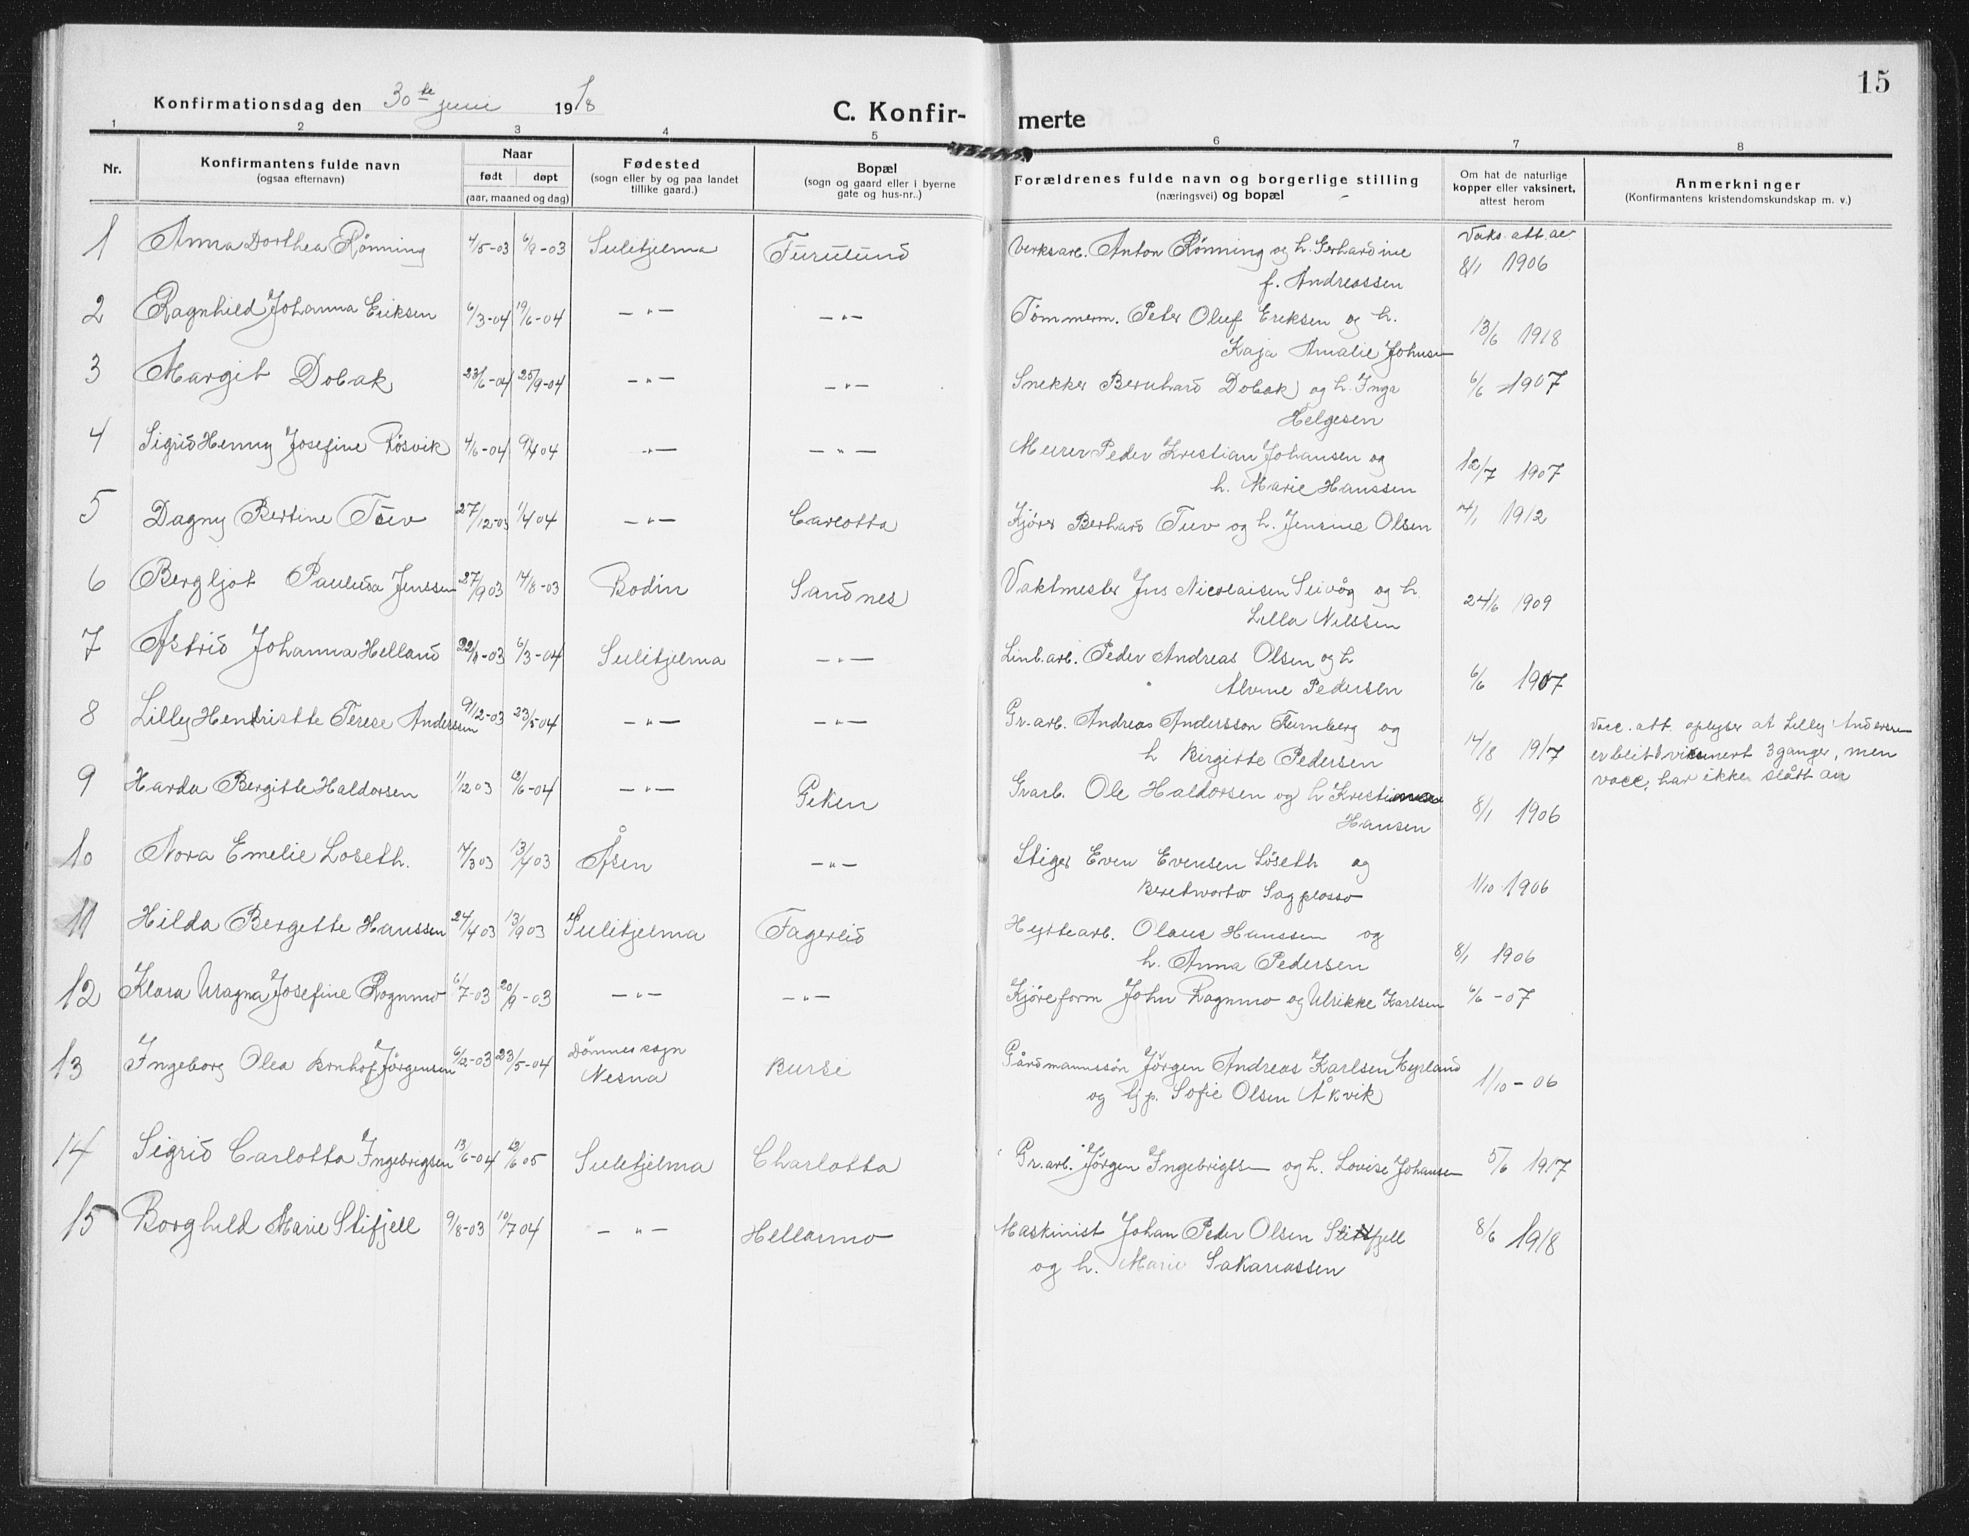 15
Konfirmationsdag den 30te juni 1918
C. Konfir- merte
1 2 3 4 5 6 7 8
Nr.
Konfirmantens fulde navn
(ogsaa efternavn)
Naar
født døpt
(aar, maaned og dag)
Fødested
(sogn eller by og paa landet
tillike gaard.)
Bopæl
(sogn og gaard eller i byerne
gate og hus-nr.)
Forældrenes fulde navn og borgerlige stilling
(næringsvei) og bopæl
Om hat de naturlige
kopper eller vaksinert,
attest herom
Anmerkninger
(Konfirmantens kristendomskundskap m. v.)
1 Anna Dorthea Rönning 4/5-03 6/9-03 Sulitjelma Furulund Verksarb. Anton Rönning og h. Gerhardine Vaks. att. av
f. Andreassen 8/1 1906
2 Ragnhild Johanna Eriksen 6/3-04 19/6-04 -"- -"- Tömmerm. Peter Oluf Eriksen og h.
Kaja Amalie Johnsen 13/6 1918
3 Margit Dobak 23/6-04 25/9-04 -"- -"- Snekker Bernhard Dobak og h. Inga 6/6 1907
Helgesen
4 Sigrid Henny Josefine Rösvik 4/6-04 9/4 04 -"- -"- Meurer Peder Kristian Johansen og
h. Marie Hanssen 12/7 1907
5 Dagny Bertine Tuv 27/12-03 1/4 04 -"- Carlotta Kjörer Berhard Tuv og h. Jensine Olsen 4/1 1912
6 Bergljot Paulina Jenssen 27/9 03 14/8-03 Bodin Sandnes Vaktmester Jns Nicolaisen Seivåg og h.
Lilla Nilssen 24/6 1909
7 Astrid Johanna Helland 22/9-03 6/3-04 Sulitjelma -"- Linb.arb. Peder Andreas Olsen og h
Alvine Pedersen 6/6 1907
8 Lilly Henriette Terese Andersen 9/12-03 23/5-04 -"- -"- Gr.arb. Andreas Andersson Furnberg og
h Birgitte Pedersen 14/8 1917
Vacc. att. oplyser at Lilly Andersen
er blit vacsinert 3 ganger, men
vacc. har ikke slått an
9 Harda Bergitte Haldorsen 1/12 03 6/6-04 -"- Peken Grarb. Ole Haldorsen og h Kristianna
Hansen 8/1 1906
10 Nora Emelie Loseth. 7/3 03 13/4 03 Åsen -"- Stiger Even Evensen Löseth og
Sagplosso 1/10 1906
11 Hilda Bergette Hanssen 24/4 03 13/9 03 Sulitjelma Fagerlid Hyttearb. Olaus Hanssen og
h. Anna Pedersen 8/1 1906
12 Klara Magna Josefine Rognmo 6/7-03 20/9-03 -"- -"- Kjöreform John Rognmo og Ulrikke Karlsen 6/6-07
13 Ingeborg Olea Jörgensen 6/2-03 23/5-04 Dönnes sogn
Nesna Bursi Gårdmannssön Jörgen Andreas Karlsen
og tj.p. Sofie Olsen Åkvik 1/10-06
14 Sigrid Carlotta Ingebrigtsen 13/6-04 12/6 05 Sulitjelma Charlotta Gr.arb. Jörgen Ingebrigtsen og h. Lovise Johansen 5/6 1917
15 Borghild Marie Stifjell 9/8-03 10/7 04 -"- Hellarmo Maskinist Johan Peder Olsen Stifjell 8/6 1918
og h. Marie Sakariassen